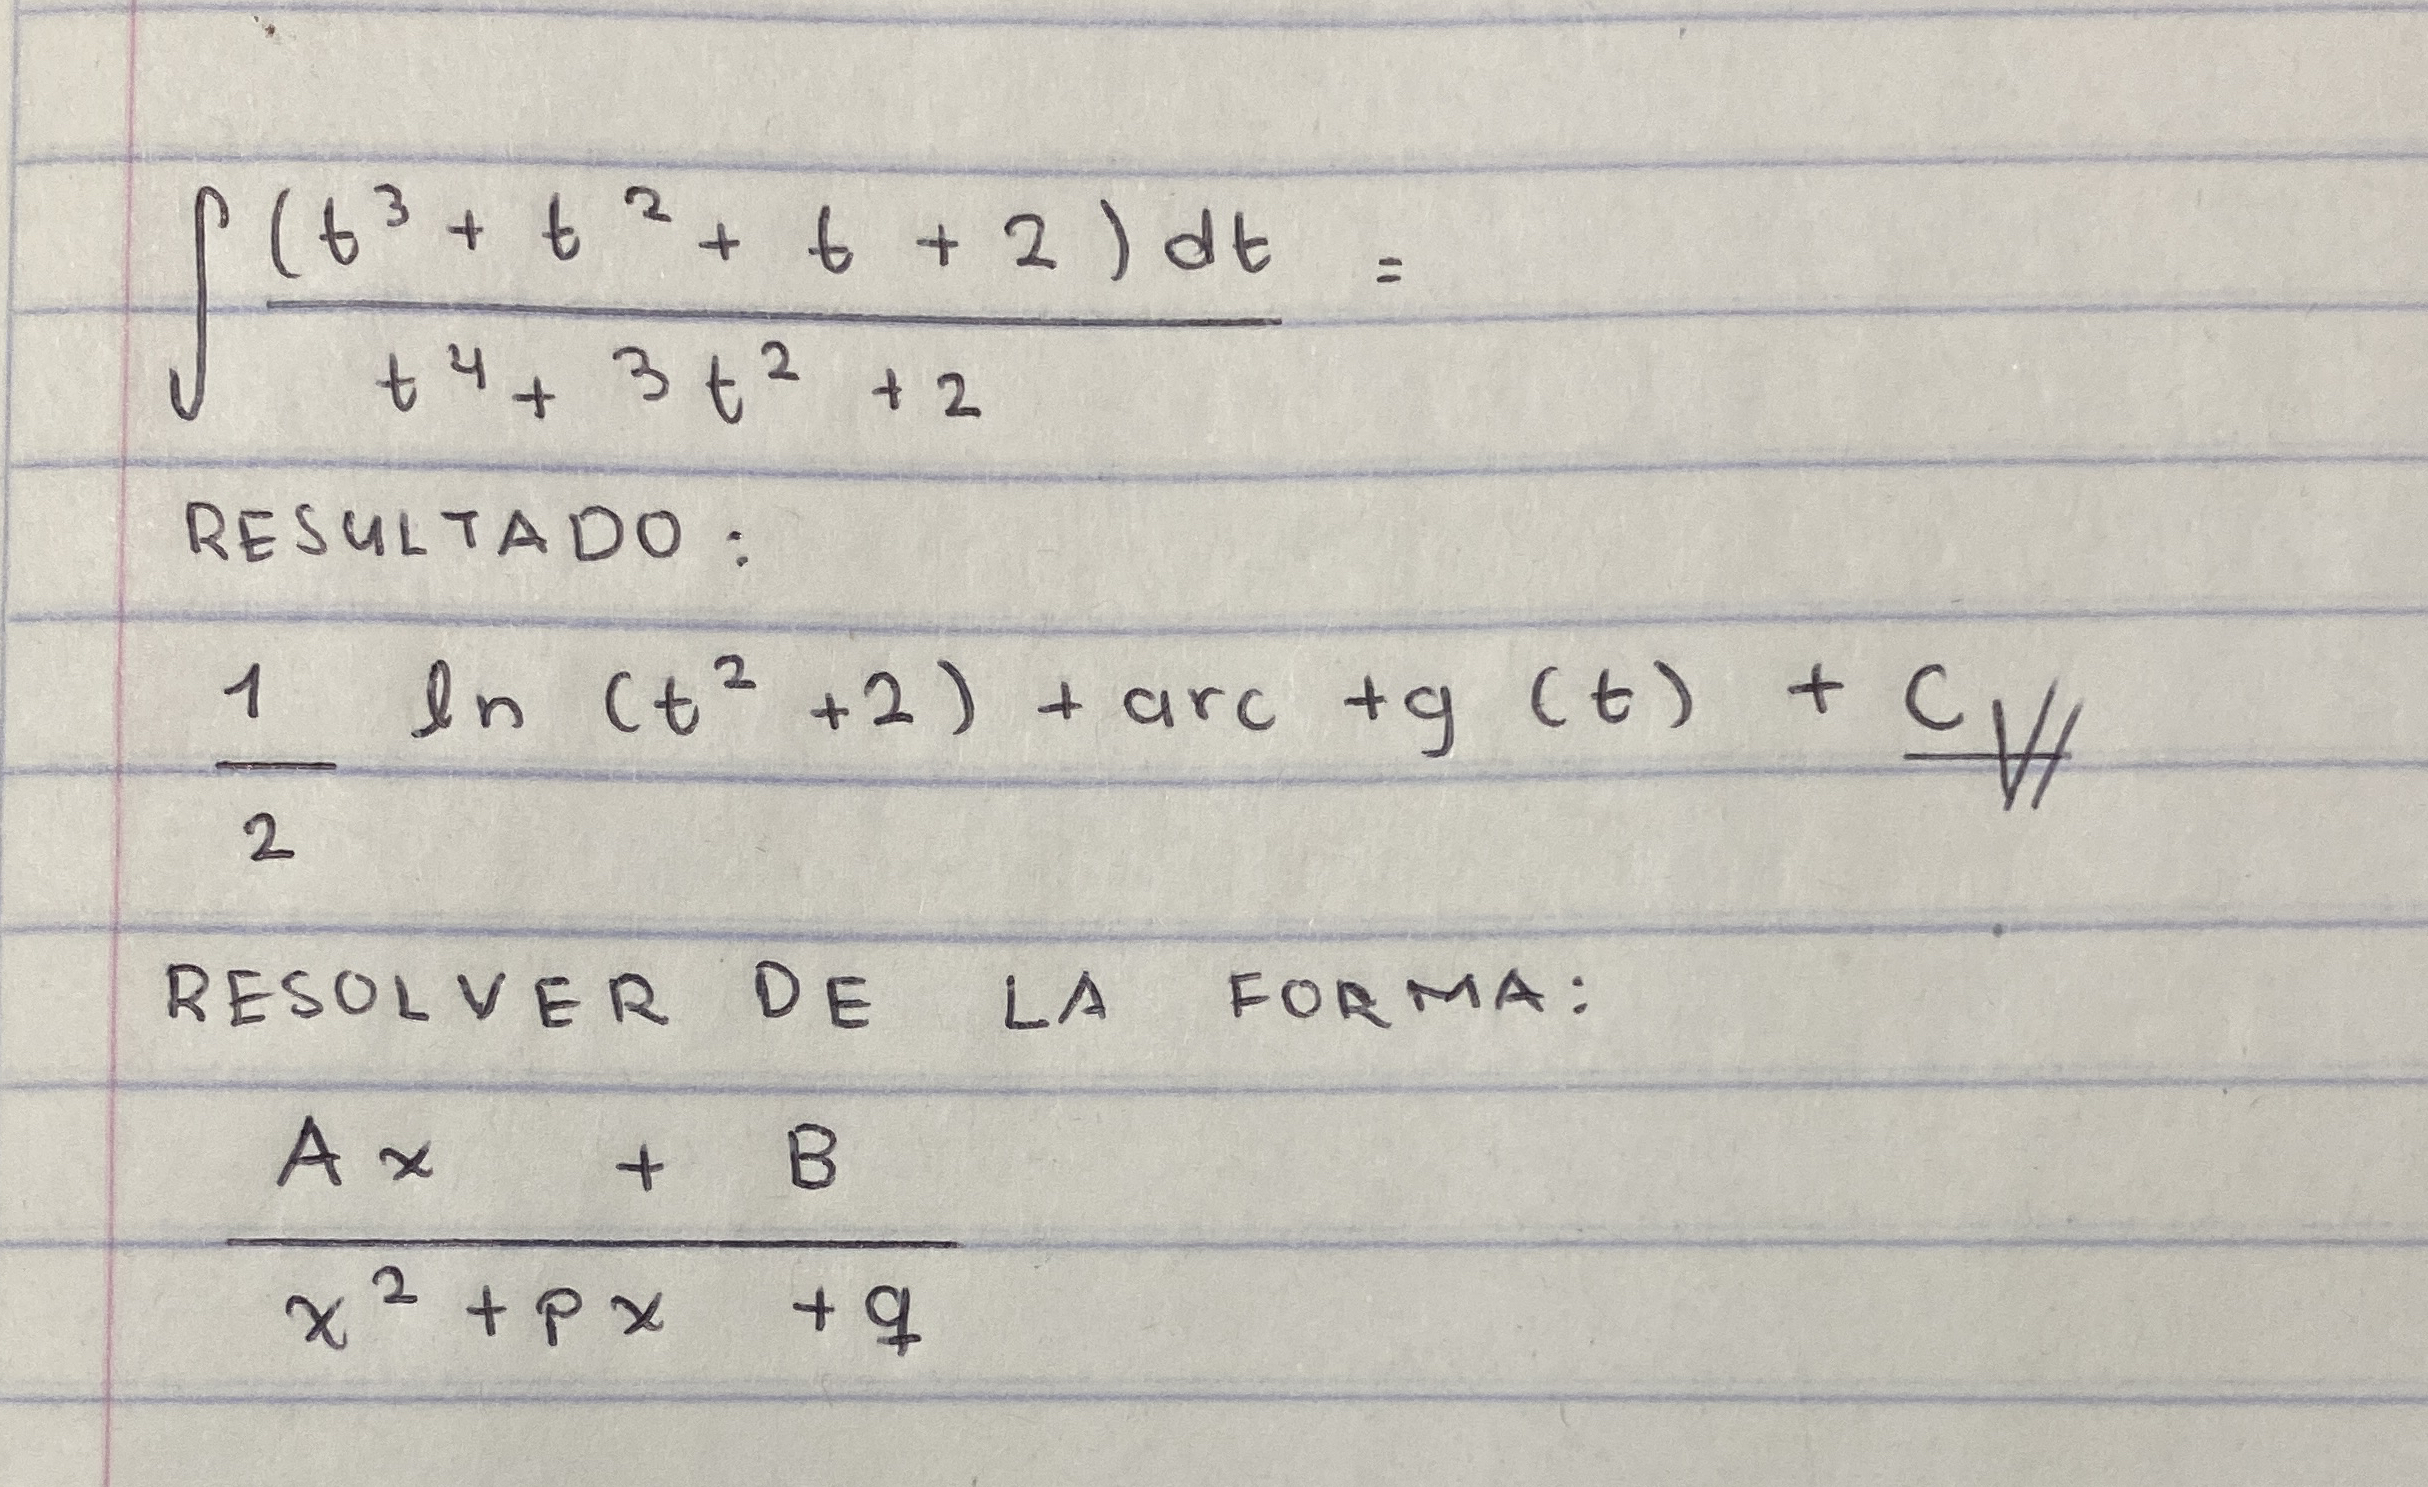 ∫ (t³ + t² + t + 2) dt =
t⁴ + 3t² + 2
RESULTADO:
1 ln (t² + 2) + arc tg (t) + C
2
RESOLVER DE LA FORMA:
Ax + B
x² + px + q